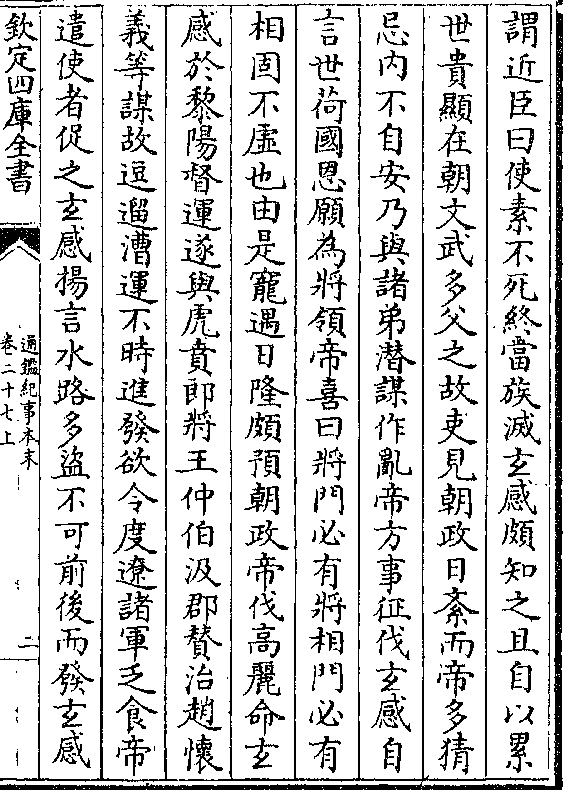 謂近臣曰使素不死終當族滅玄感頗知之且自以累
世貴顯在朝文武多父之故吏見朝政日紊而帝多猜
忌内不自安乃與諸弟潛謀作亂帝方事征伐玄感自
言世荷國恩願為將領帝喜曰將門必有將相門必有
相固不虛也由是寵遇日隆頗預朝政帝伐高麗命玄
感於黎陽督運遂與虎賁郎將王仲伯汲郡贊治趙懷
義等謀故逗遛漕運不時進發欲令度遼諸軍乏食帝
遣使者促之玄感揚言水路多盜不可前後而發玄感
欽定四庫全書
通鑑紀事本末
卷二十七上
二